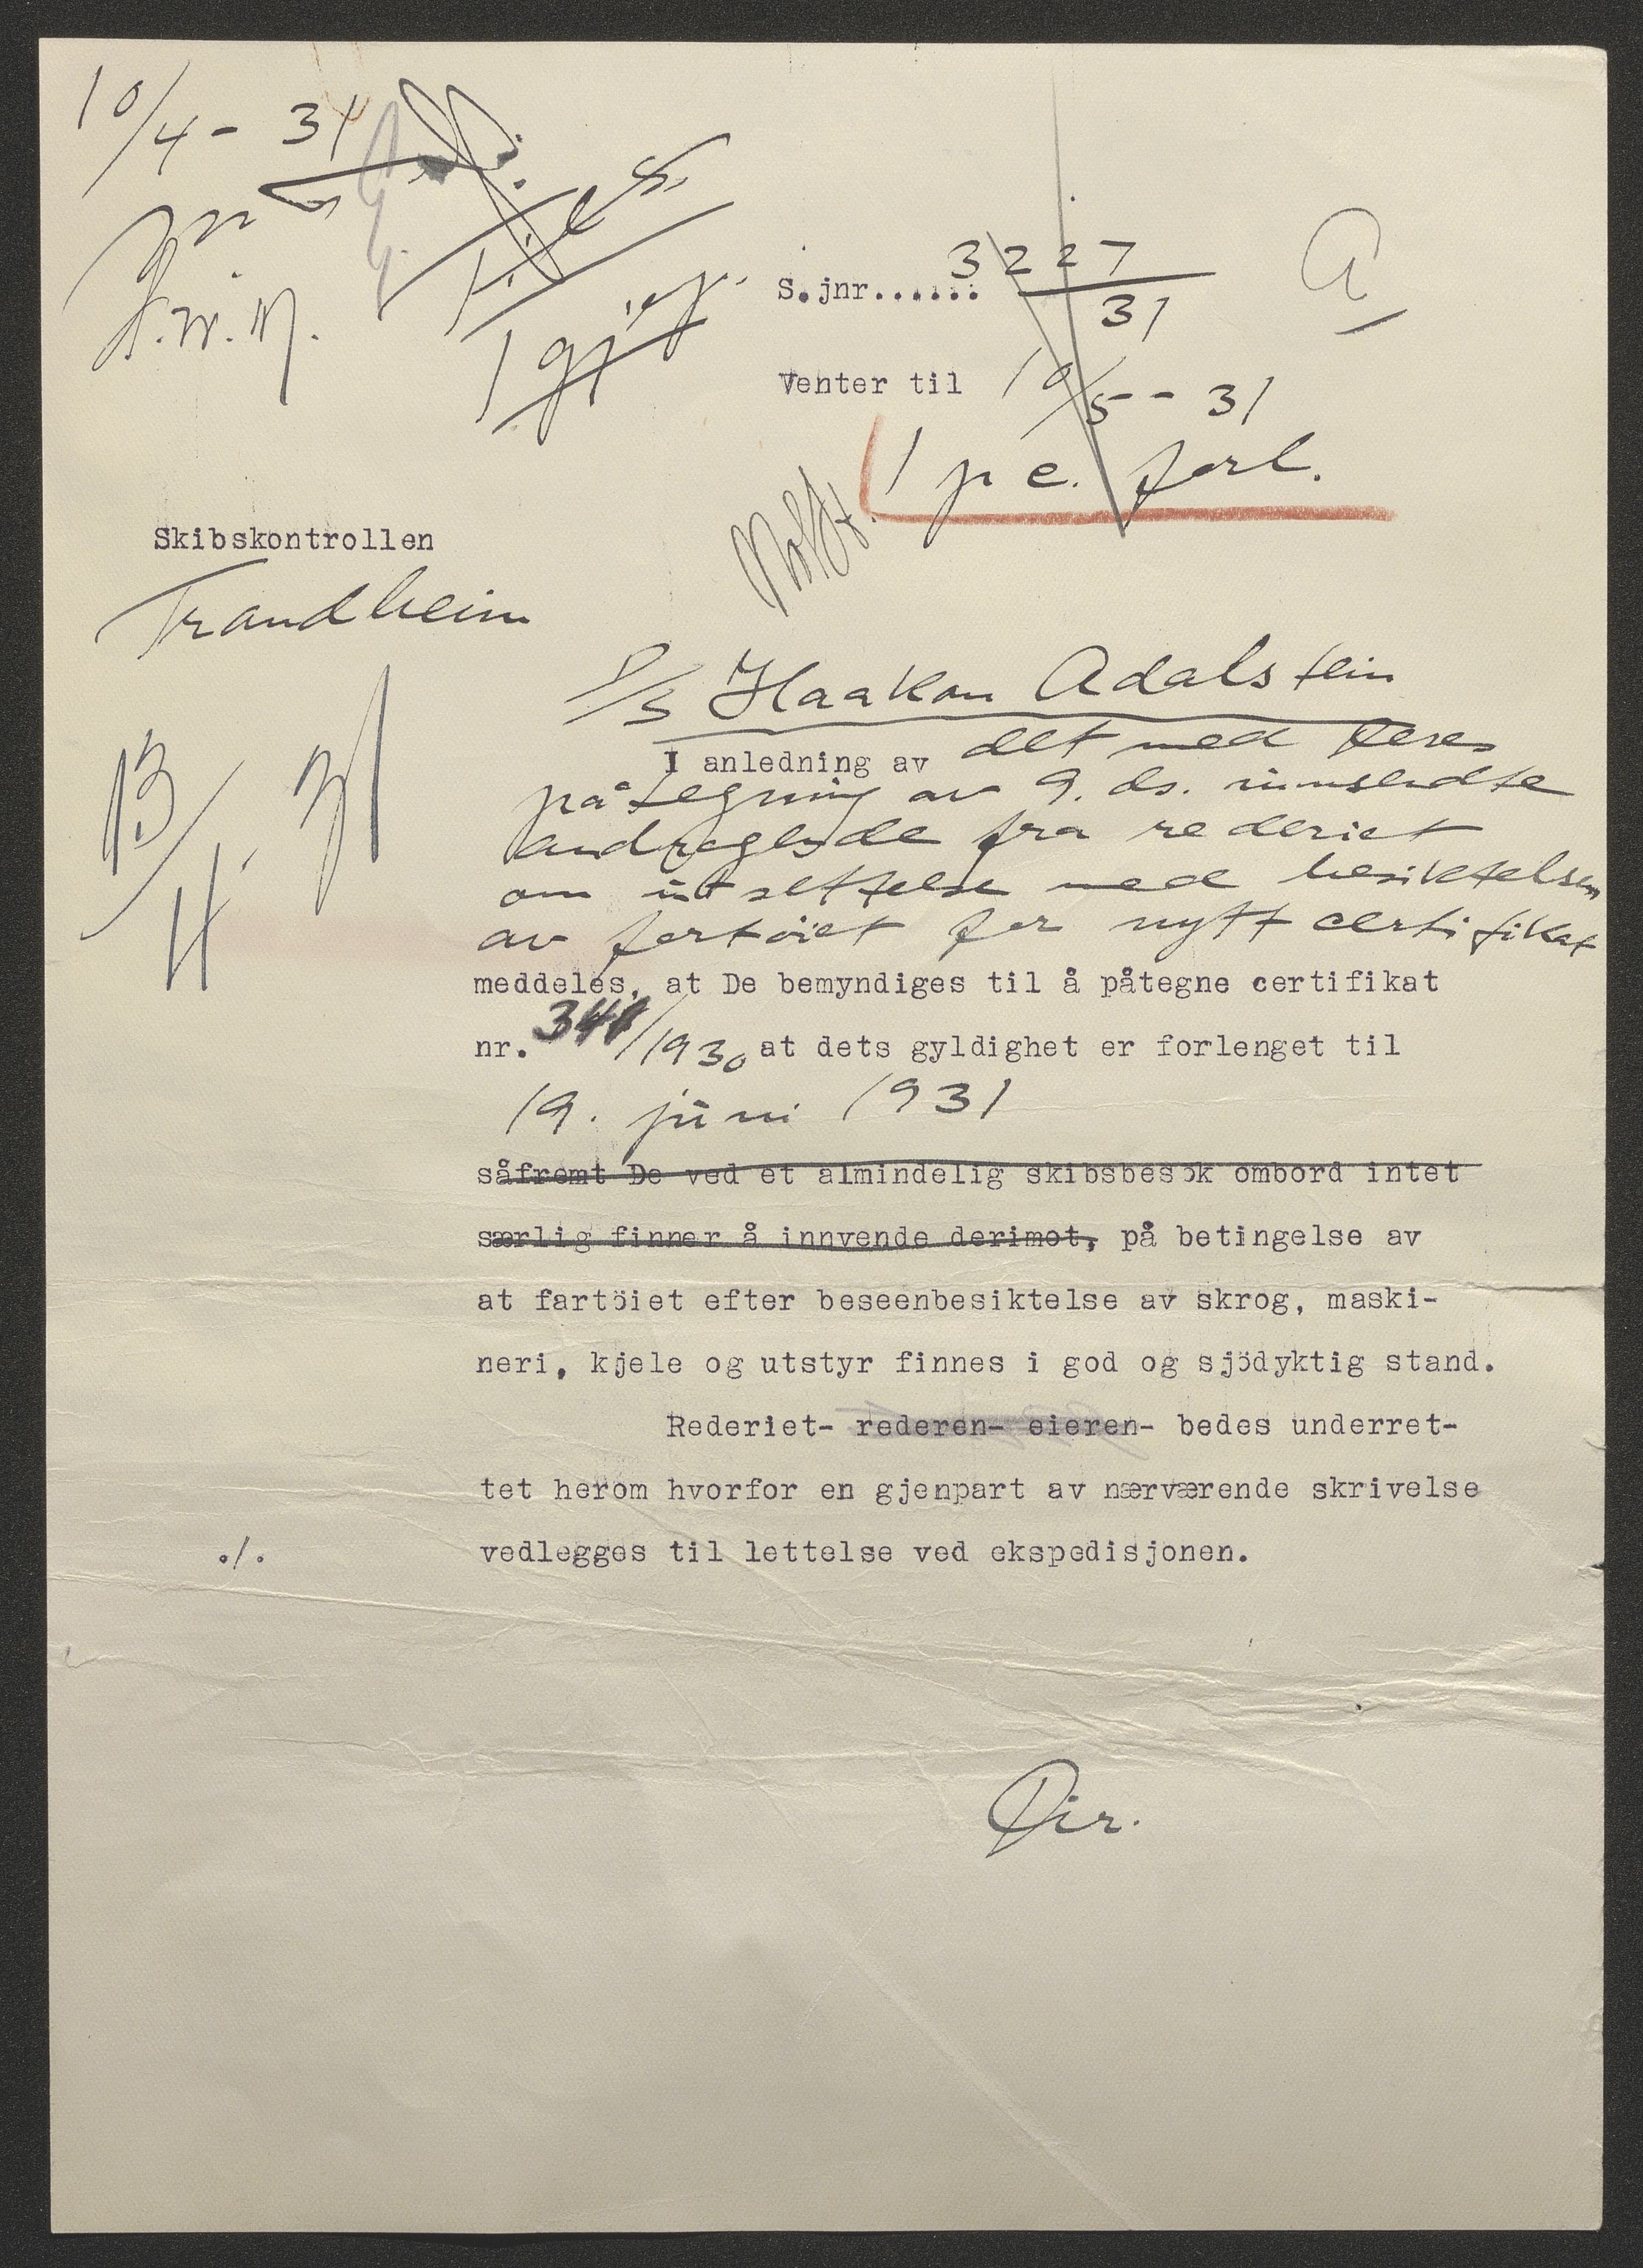 10/4 - 31
S.jnr...... 3227
31
A
Venter til 10/5 - 31
1 p c. forl.
Skibskontrollen
Trondheim
D/S Haakon Adalstein
13/4. 31
I anledning av det med Deres
påtegning av 9. ds. innsendte
andragende fra rederiet
om utsettelse med besiktelsen
av fartöiet for nytt certifikat
meddeles, at De bemyndiges til å påtegne certifikat
nr. 341/1930 at dets gyldighet er forlenget til
19. juni 1931
såfremt De ved et almindelig skibsbesök ombord intet
særlig finner å innvende derimot, på betingelse av
at fartöiet efter beseenbesiktelse av skrog, maski-
neri, kjele og utstyr finnes i god og sjödyktig stand.
Rederiet- rederen- eieren- bedes underret-
tet herom hvorfor en gjenpart av nærværende skrivelse
vedlegges til lettelse ved ekspedisjonen.
./.
Dir.